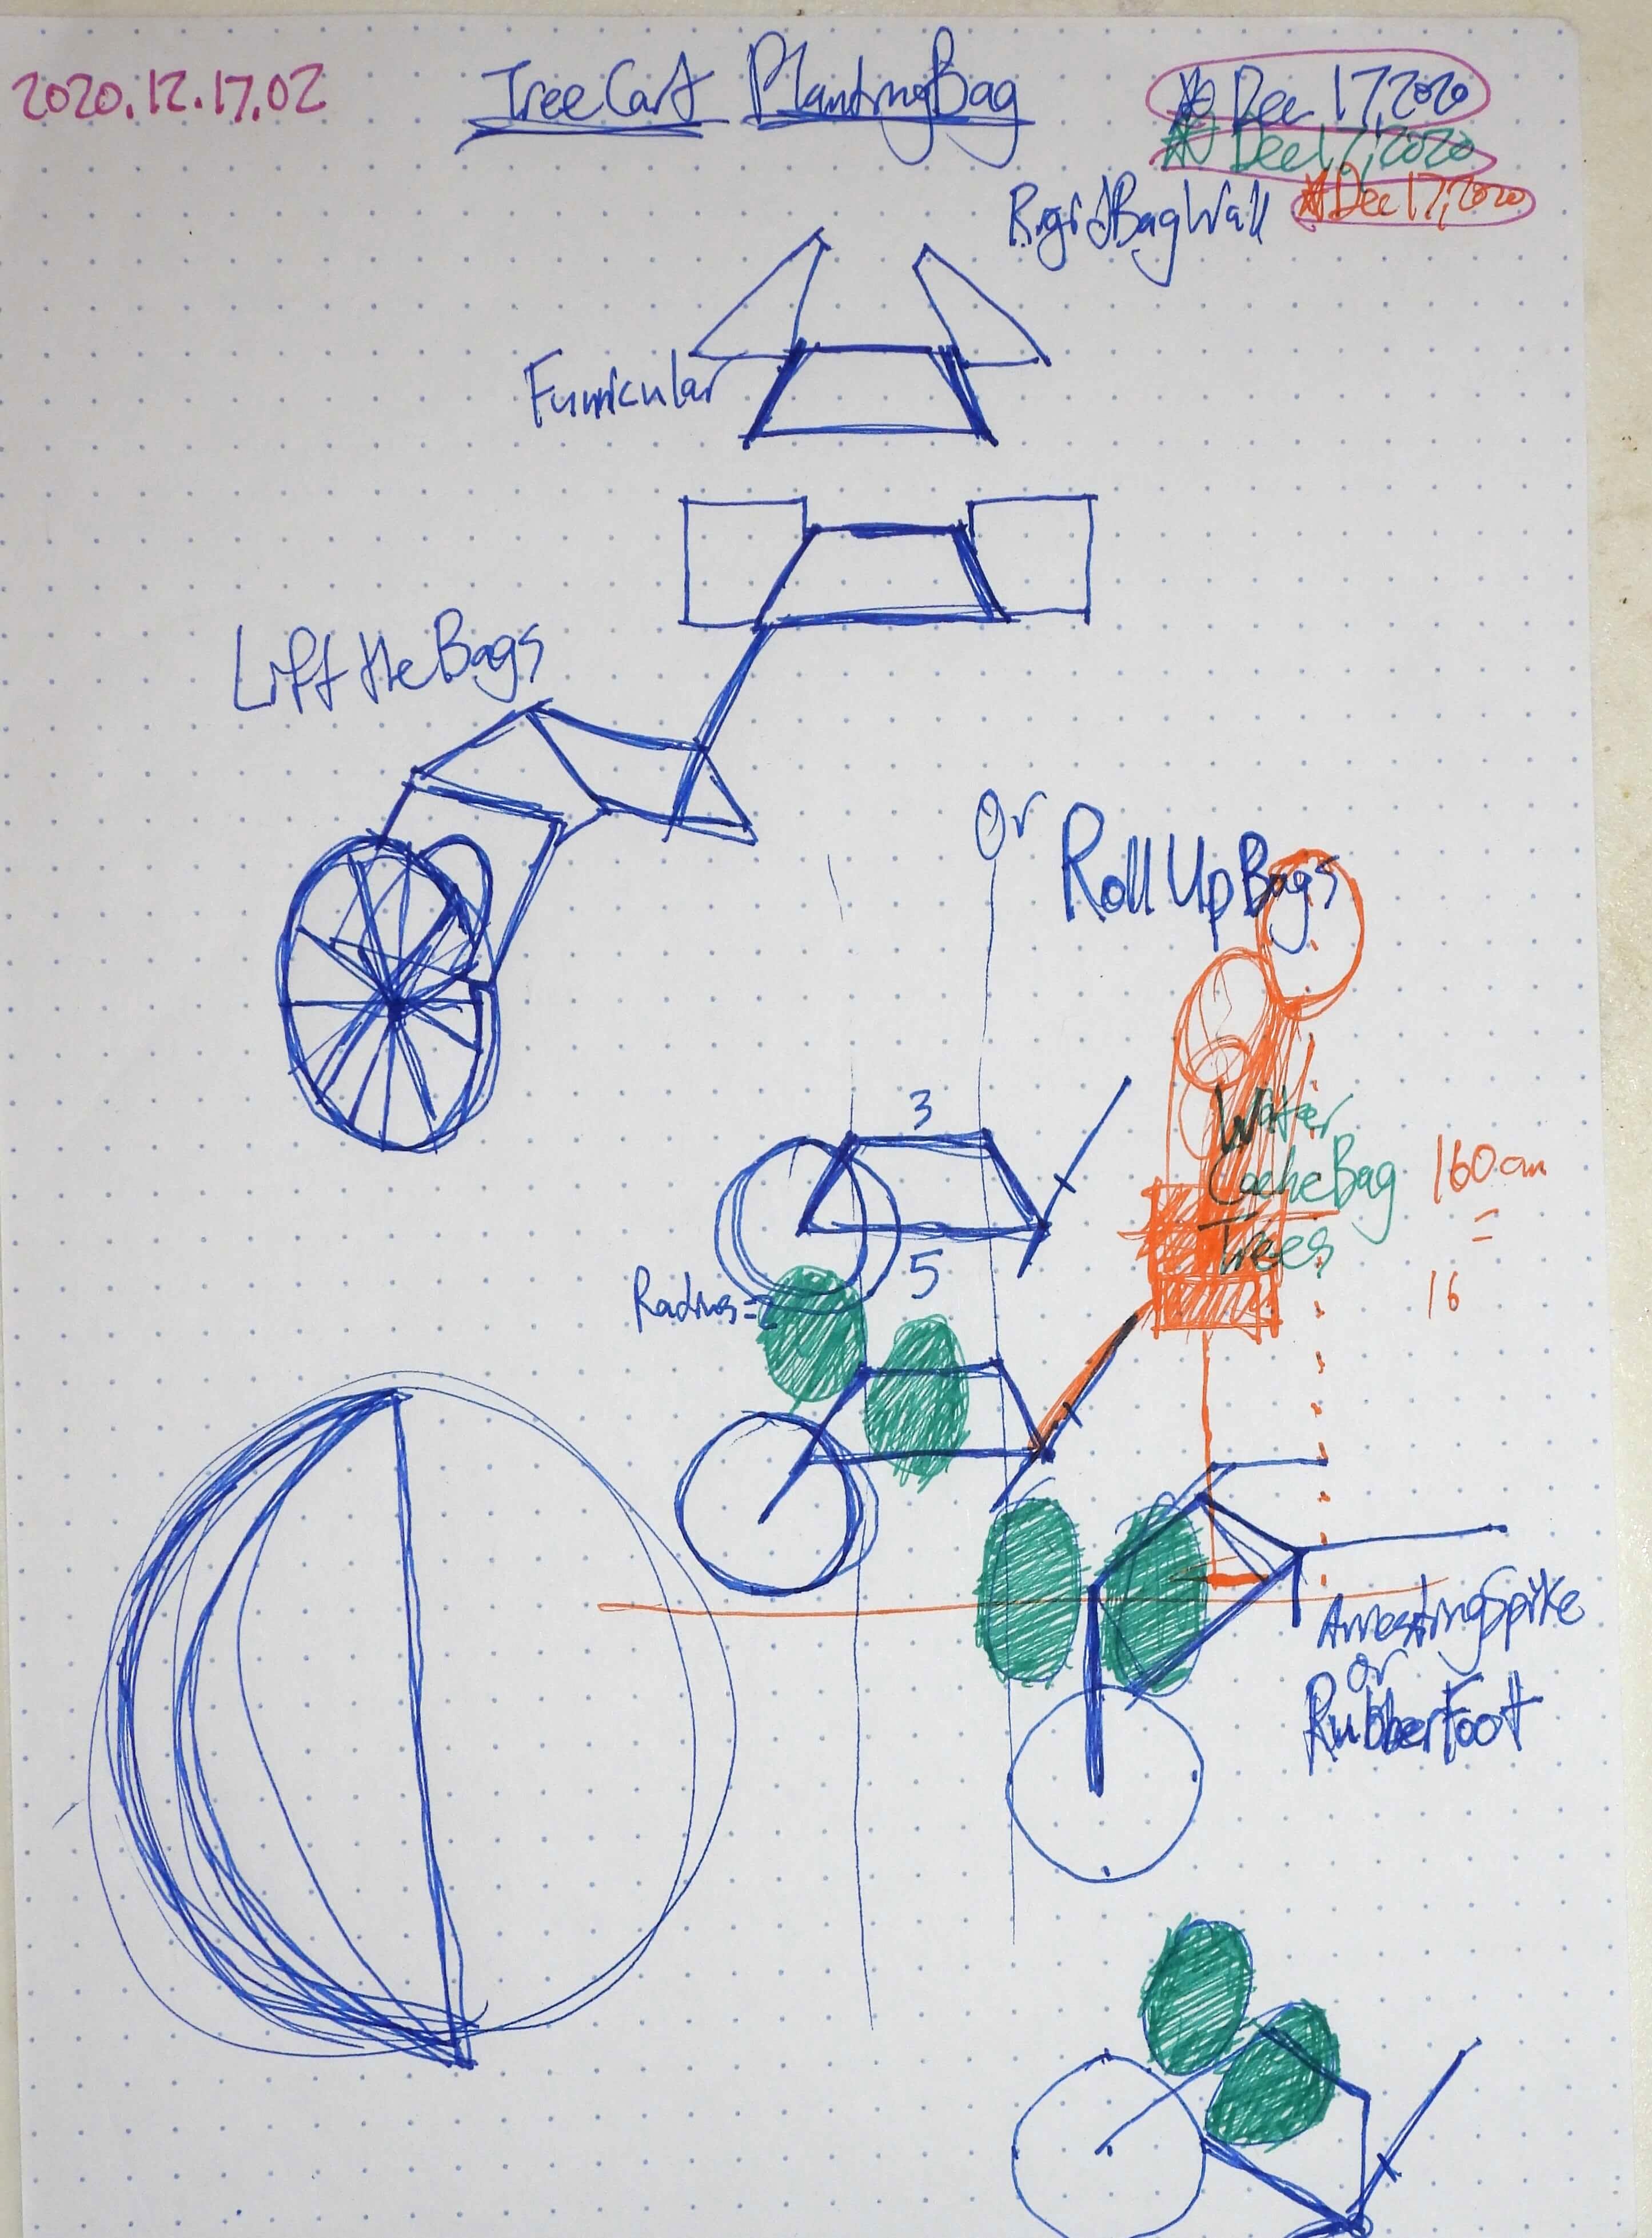 2020.12.17.02
TreeCart PlantingBag
Dec 17, 2020
Dec 17, 2020
Dec 17, 2020
RigidBagWall
Funicular
Lift the Bags
Or
Roll Up Bags
3
5
Radius=2
Water
CacheBag
Trees
160cm
=
16
ArrestingSpike
or
RubberFoot